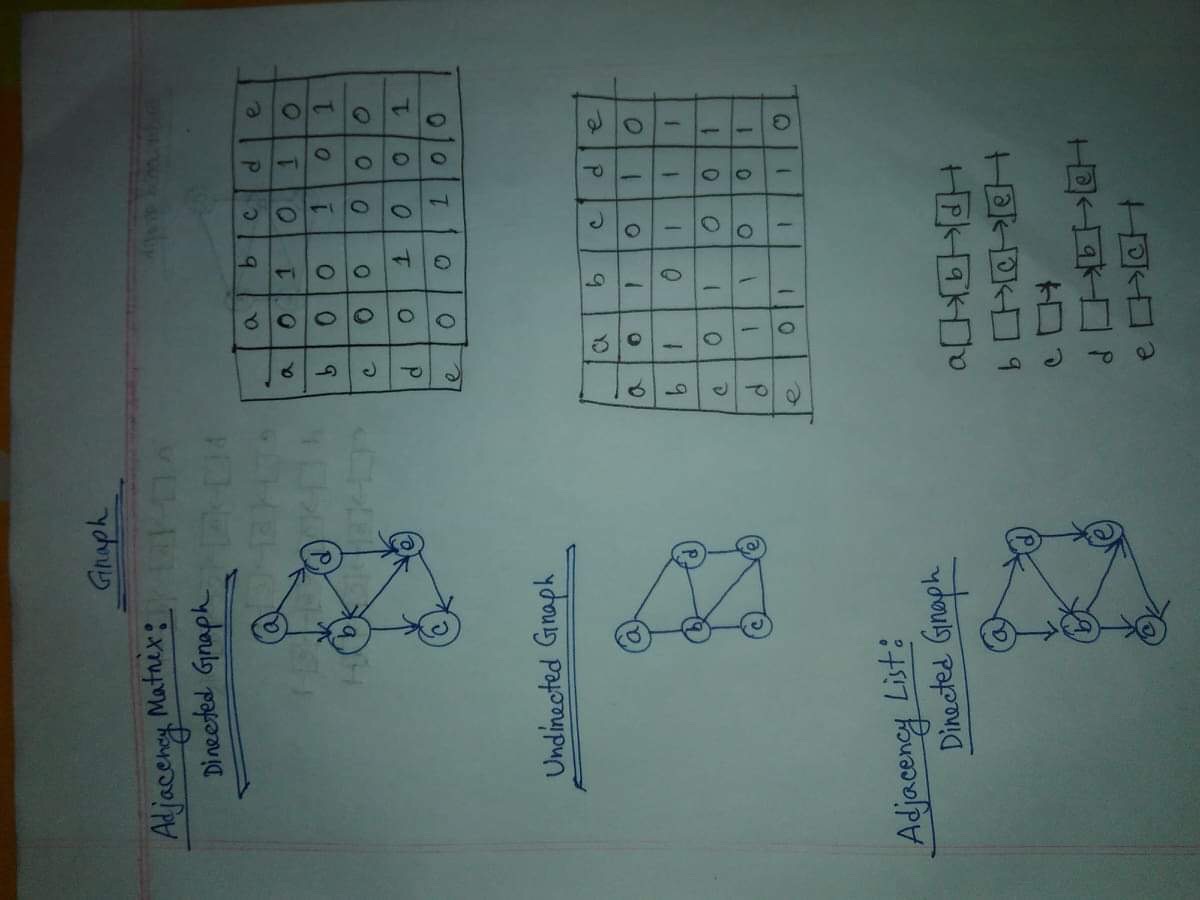 Graph
Adjacency Matrix:
Directed Graph
a
d
b
e
c
a b c d e
a 0 1 0 1 0
b 0 0 1 0 1
c 0 0 0 0 0
d 0 1 0 0 1
e 0 0 1 0 0
Undirected Graph
a
d
b
e
c
a b c d e
a 0 1 0 1 0
b 1 0 1 1 1
c 0 1 0 0 1
d 1 1 0 0 1
e 0 1 1 1 0
Adjacency List:
Directed Graph
a
d
b
e
c
a b d
b c e
c
d b e
e c